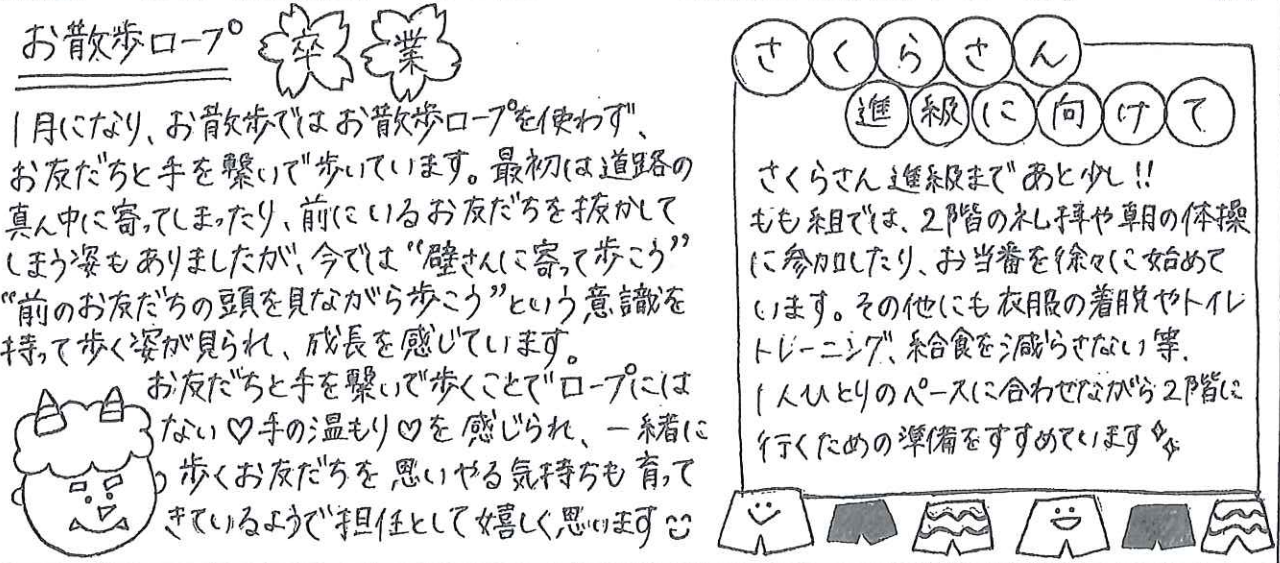 お散歩ロープ 卒業
1月になり、お散歩ではお散歩ロープを使わず、
お友だちと手を繋いで歩いています。最初は道路の
真ん中に寄ってしまったり、前にいるお友だちを抜かして
しまう姿もありましたが、今では“壁さんに寄って歩こう”
“前のお友だちの頭を見ながら歩こう”という意識を
持って歩く姿が見られ、成長を感じています。
お友だちと手を繋いで歩くことでロープには
ない♡手の温もり♡を感じられ、一緒に
歩くお友だちを思いやる気持ちも育って
きているようで担任として嬉しく思います
さくらさん
進級に向けて
さくらさん進級まであと少し!!
もも組では、2階の礼拝や朝の体操
に参加したり、お当番を徐々に始めて
います。その他にも衣服の着脱やトイレ
トレーニング、給食を減らさない等、
1人ひとりのペースに合わせながら2階に
行くための準備をすすめています